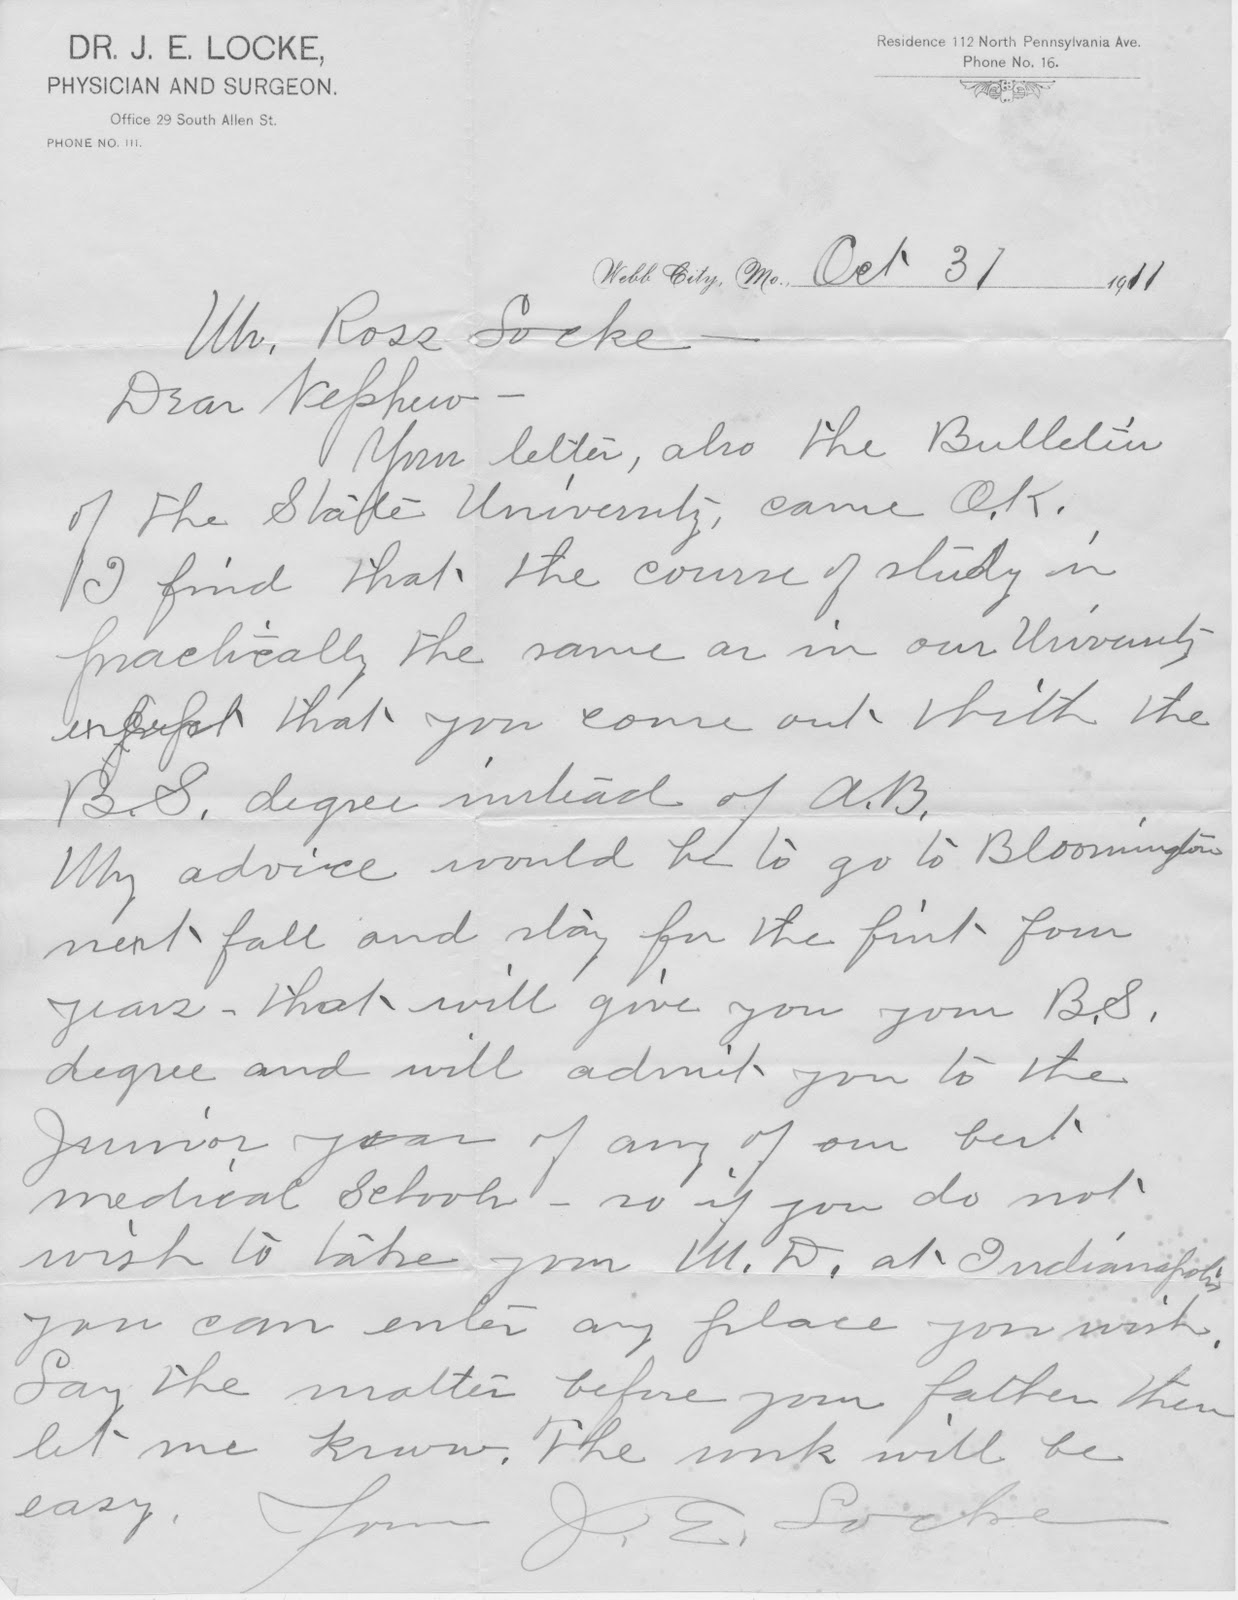 DR. J. E. LOCKE,
PHYSICIAN AND SURGEON.
Office 29 South Allen St.
PHONE NO. 111.
Residence 112 North Pennsylvania Ave.
Phone No. 16.
Webb City, Mo., Oct 31 1911
Mr. Ross Locke —
Dear Nephew —
Your letter, also the Bulletin
of the State University, came O.K.
I find that the course of study in
practically the same as in our University
except that you come out with the
B.S. degree instead of A.B.
My advice would be to go to Bloomington
next fall and stay for the first four
years - that will give you your B.S.
degree and will admit you to the
Junior year of any of our best
medical schools - so if you do not
wish to take your M.D. at Indianapolis
you can enter any place you wish.
Lay the matter before your father then
let me know. The work will be
easy. Your J. E. Locke